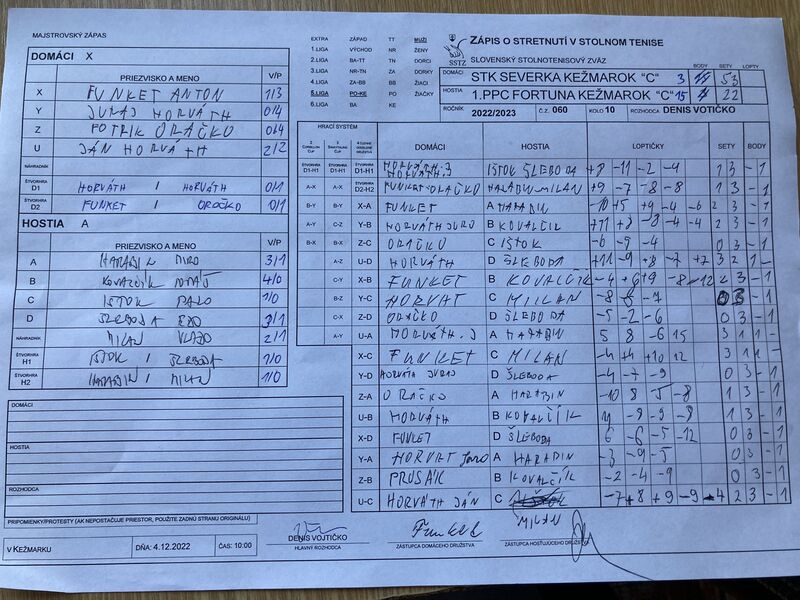 MAJSTROVSKÝ ZÁPAS
DOMÁCI X
PRIEZVISKO A MENO V/P
X FUNKET ANTON 1/3
Y JURAJ HORVÁTH 0/4
Z ORAČKO 0/4
U JÁN HORVÁTH 2/2
NÁHRADNÍK
ŠTVORHRA D1 HORVÁTH / HORVÁTH 0/1
ŠTVORHRA D2 FUNKET / ORAČKO 0/1
HOSTIA A
PRIEZVISKO A MENO V/P
A HARABIN MIRO 3/1
B KOVALČÍK 4/0
C IŠTOK PALO 1/0
D ŠLEBODA 3/1
NÁHRADNÍK MILAN VLADO 2/1
ŠTVORHRA H1 IŠTOK / ŠLEBODA 1/0
ŠTVORHRA H2 HARABIN / MILAN 1/0
DOMÁCI
HOSTIA
ROZHODCA
PRIPOMIENKY/PROTESTY (AK NEPOSTAČUJE PRIESTOR, POUŽITE ZADNÚ STRANU ORIGINÁLU)
V KEŽMARKU DŇA: 4.12.2022 ČAS: 10:00
EXTRA ZÁPAD TT MUŽI
1.LIGA VÝCHOD NR ŽENY
2.LIGA BA-TT TN DORCI
3.LIGA NR-TN ZA DORKY
4.LIGA ZA-BB BB ŽIACI
5.LIGA PO-KE PO ŽIAČKY
6.LIGA BA KE
SSTZ
ZÁPIS O STRETNUTÍ V STOLNOM TENISE
SLOVENSKÝ STOLNOTENISOVÝ ZVÄZ
BODY SETY LOPTY
DOMÁCI STK SEVERKA KEŽMAROK "C" 3 53
HOSTIA 1.PPC FORTUNA KEŽMAROK "C" 15 22
ROČNÍK 2022/2023 Č.Z. 060 KOLO 10 ROZHODCA DENIS VOTIČKO
HRACÍ SYSTÉM
DOMÁCI HOSTIA LOPTIČKY SETY BODY
ŠTVORHRA D1-H1 ŠTVORHRA D1-H1 ŠTVORHRA D1-H1 HORVÁTH.J HORVÁTH.J IŠTOK ŠLEBODA +8 -11 -2 -4 1 3 - 1
A-X A-X ŠTVORHRA D2-H2 FUNKET ORAČKO HARABIN MILAN +9 -7 -8 -8 1 3 - 1
B-Y B-Y X-A FUNKET A HARABIN -10 +5 +9 -4 -6 2 3 - 1
A-Y C-Z Y-B HORVÁTH JURO B KOVALČIK +11 +8 -8 -4 -4 2 3 - 1
B-X B-X Z-C ORAČKO C IŠTOK -6 -9 -4 0 3 - 1
A-Z U-D HORVÁTH D ŠLEBODA +11 -9 +8 -7 +7 3 2 1 -
C-Y X-B FUNKET B KOVALČIK -4 +6 +9 -8 -12 2 3 - 1
B-Z Y-C HORVAT C MILAN -8 -7 0 3 - 1
C-X Z-D ORAČKO D ŠLEBODA -5 -2 -6 0 3 - 1
A-Y U-A HORVÁTH.J A HARABIN 5 8 -6 15 3 1 1 -
X-C FUNKET C MILAN -4 +4 +10 12 3 1 1 -
Y-D HORVÁTH JURAJ D ŠLEBODA -4 -7 -9 0 3 - 1
Z-A ORAČKO A HARABIN -10 8 -5 -8 1 3 - 1
U-B HORVÁTH B KOVALČÍK -9 -9 -8 1 3 - 1
X-D FUNKET D ŠLEBODA 6 -6 -5 -12 0 3 - 1
Y-A HORVAT JURO A HARABIN -3 -9 -5 0 3 - 1
Z-B PRUSÁIK B KOVALČÍK -2 -4 -9 0 3 - 1
U-C HORVÁTH JÁN C -7 +8 +9 -9 -4 2 3 - 1
MILAN
DENIS VOJTIČKO
HLAVNÝ ROZHODCA
Funket
ZÁSTUPCA DOMÁCEHO DRUŽSTVA
ZÁSTUPCA HOSŤUJÚCEHO DRUŽSTVA